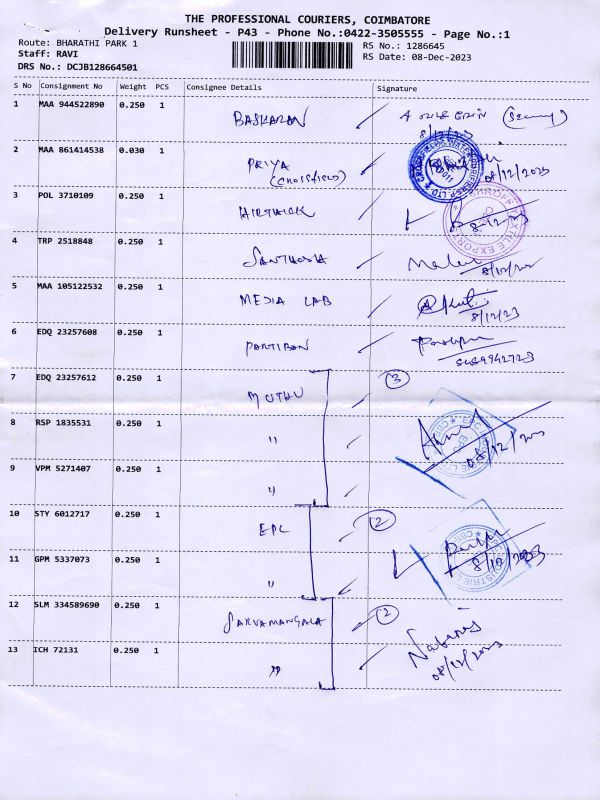 THE PROFESSIONAL COURIERS, COIMBATORE
Delivery Runsheet - P43 - Phone No.:0422-3505555 - Page No.:1
Route: BHARATHI PARK 1
Staff: RAVI
DRS No.: DCJB128664501
RS No.: 1286645
RS Date: 08-Dec-2023
S No Consignment No Weight PCS Consignee Details Signature
1 MAA 944522890 0.250 1 BASKARAN
8/12/23
2 MAA 861414538 0.030 1 PRIYA
08/12/2023
3 POL 3710109 0.250 1 HIRTHICK
8-12-23
4 TRP 2518848 0.250 1 SANTHOSH
5 MAA 105122532 0.250 1 MEDIA LAB
8/12/23
6 EDQ 23257608 0.250 1 PARTIBAN
7 EDQ 23257612 0.250 1 MUTHU 3
8 RSP 1835531 0.250 1 "
9 VPM 5271407 0.250 1 "
10 STY 6012717 0.250 1 EPC 2
11 GPM 5337073 0.250 1 "
12 SLM 334589690 0.250 1 SARVAMANGALA 2
13 ICH 72131 0.250 1 "
08/12/2023